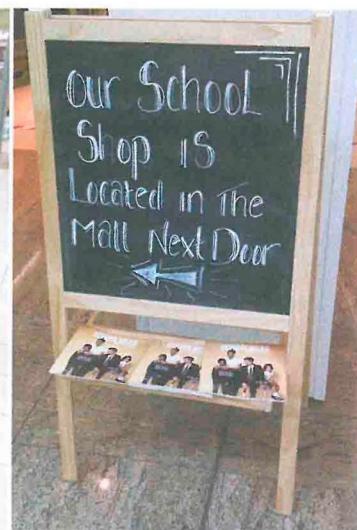 our School
Shop is
Located in The
Mall Next Door